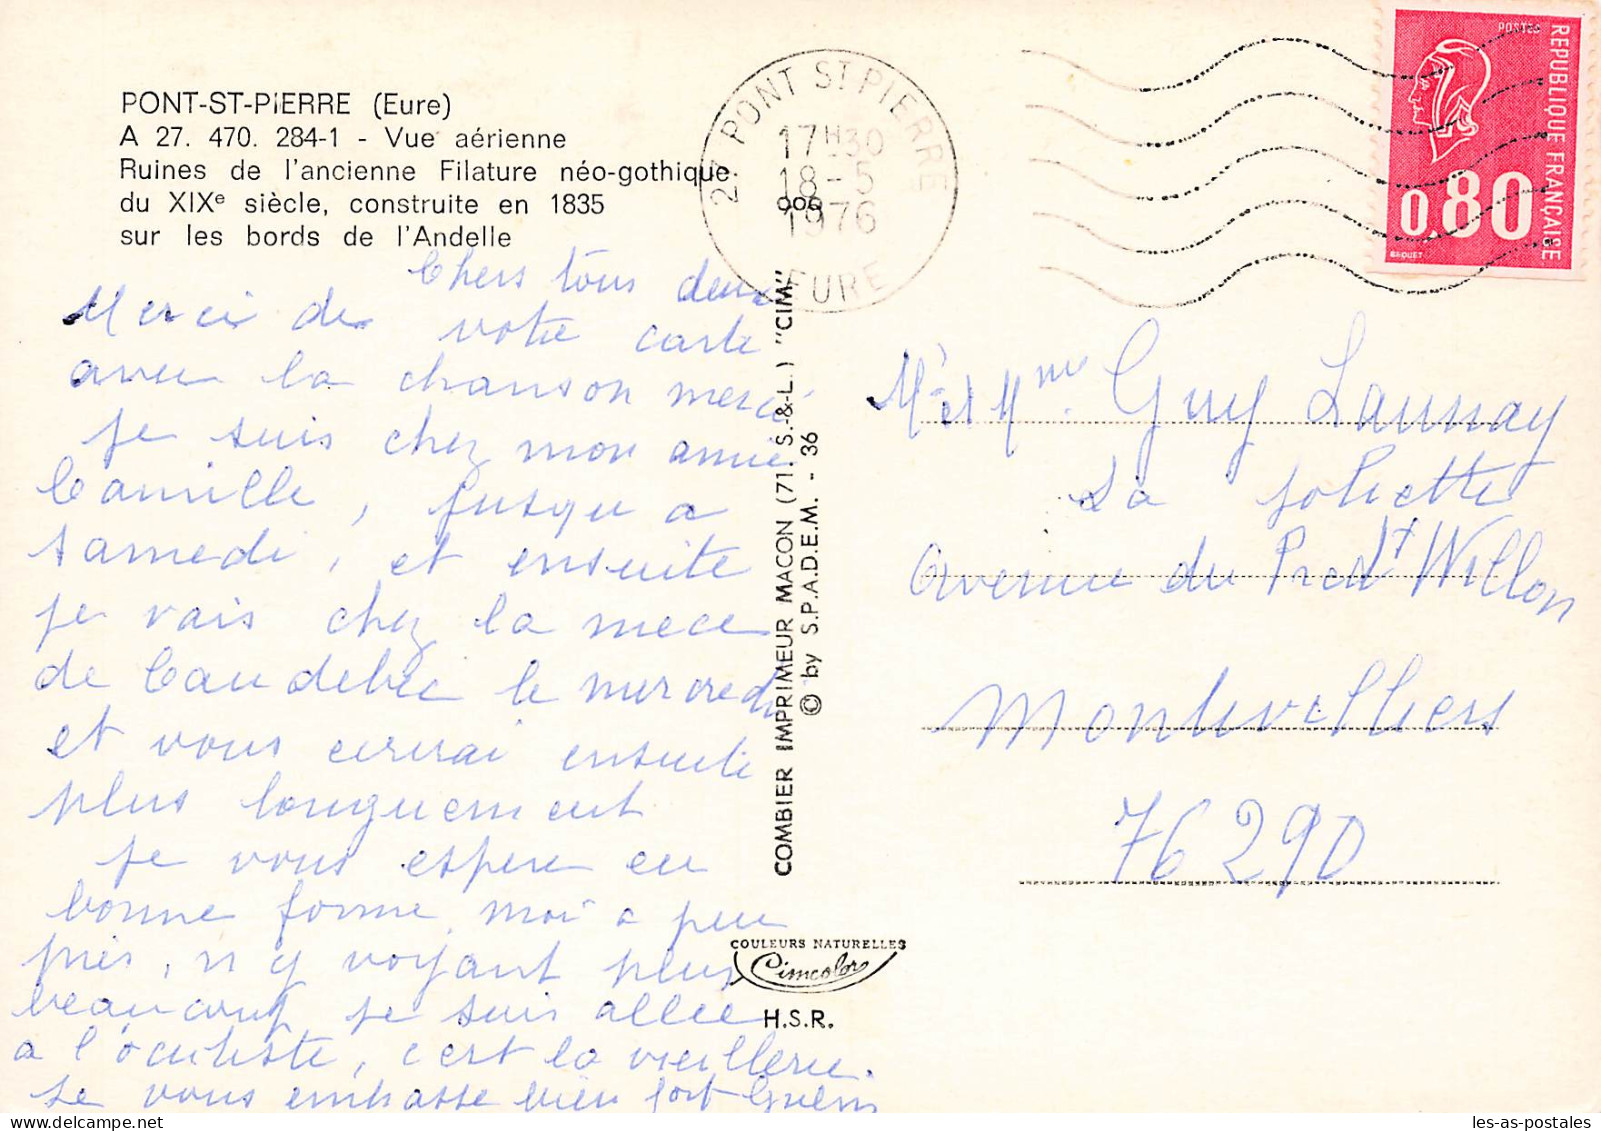 PONT-ST-PIERRE (Eure)
A 27. 470. 284-1 - Vue aérienne
Ruines de l'ancienne Filature néo-gothique
du XIXe siècle, construite en 1835
sur les bords de l'Andelle
27 PONT ST PIERRE
17H30
18-5
1976
EURE
006
POSTES
REPUBLIQUE FRANÇAISE
0,80
BEQUET
Chers tous deux
Merci de votre carte
avec la chanson merci
je suis chez mon amie
Camille, jusqu a
samedi, et ensuite
je vais chez la niece
de Caudebec le mercredi
et vous ecrirai ensuite
plus longuement
je vous espere en
bonne forme, moi a peu
près, n y voyant plus
beaucoup je suis allee
a l'oculiste, c'est la vieillerie.
Je vous embrasse bien fort
Mr et Mme Guy Launay
La Joliette
Avenue du Presdt Wilson
Montivilliers
76290
COMBIER IMPRIMEUR MACON (71. S.-&-L.) "CIM"
© by S.P.A.D.E.M. - 36
COULEURS NATURELLES
Cimcolor
H.S.R.
les-as-postales